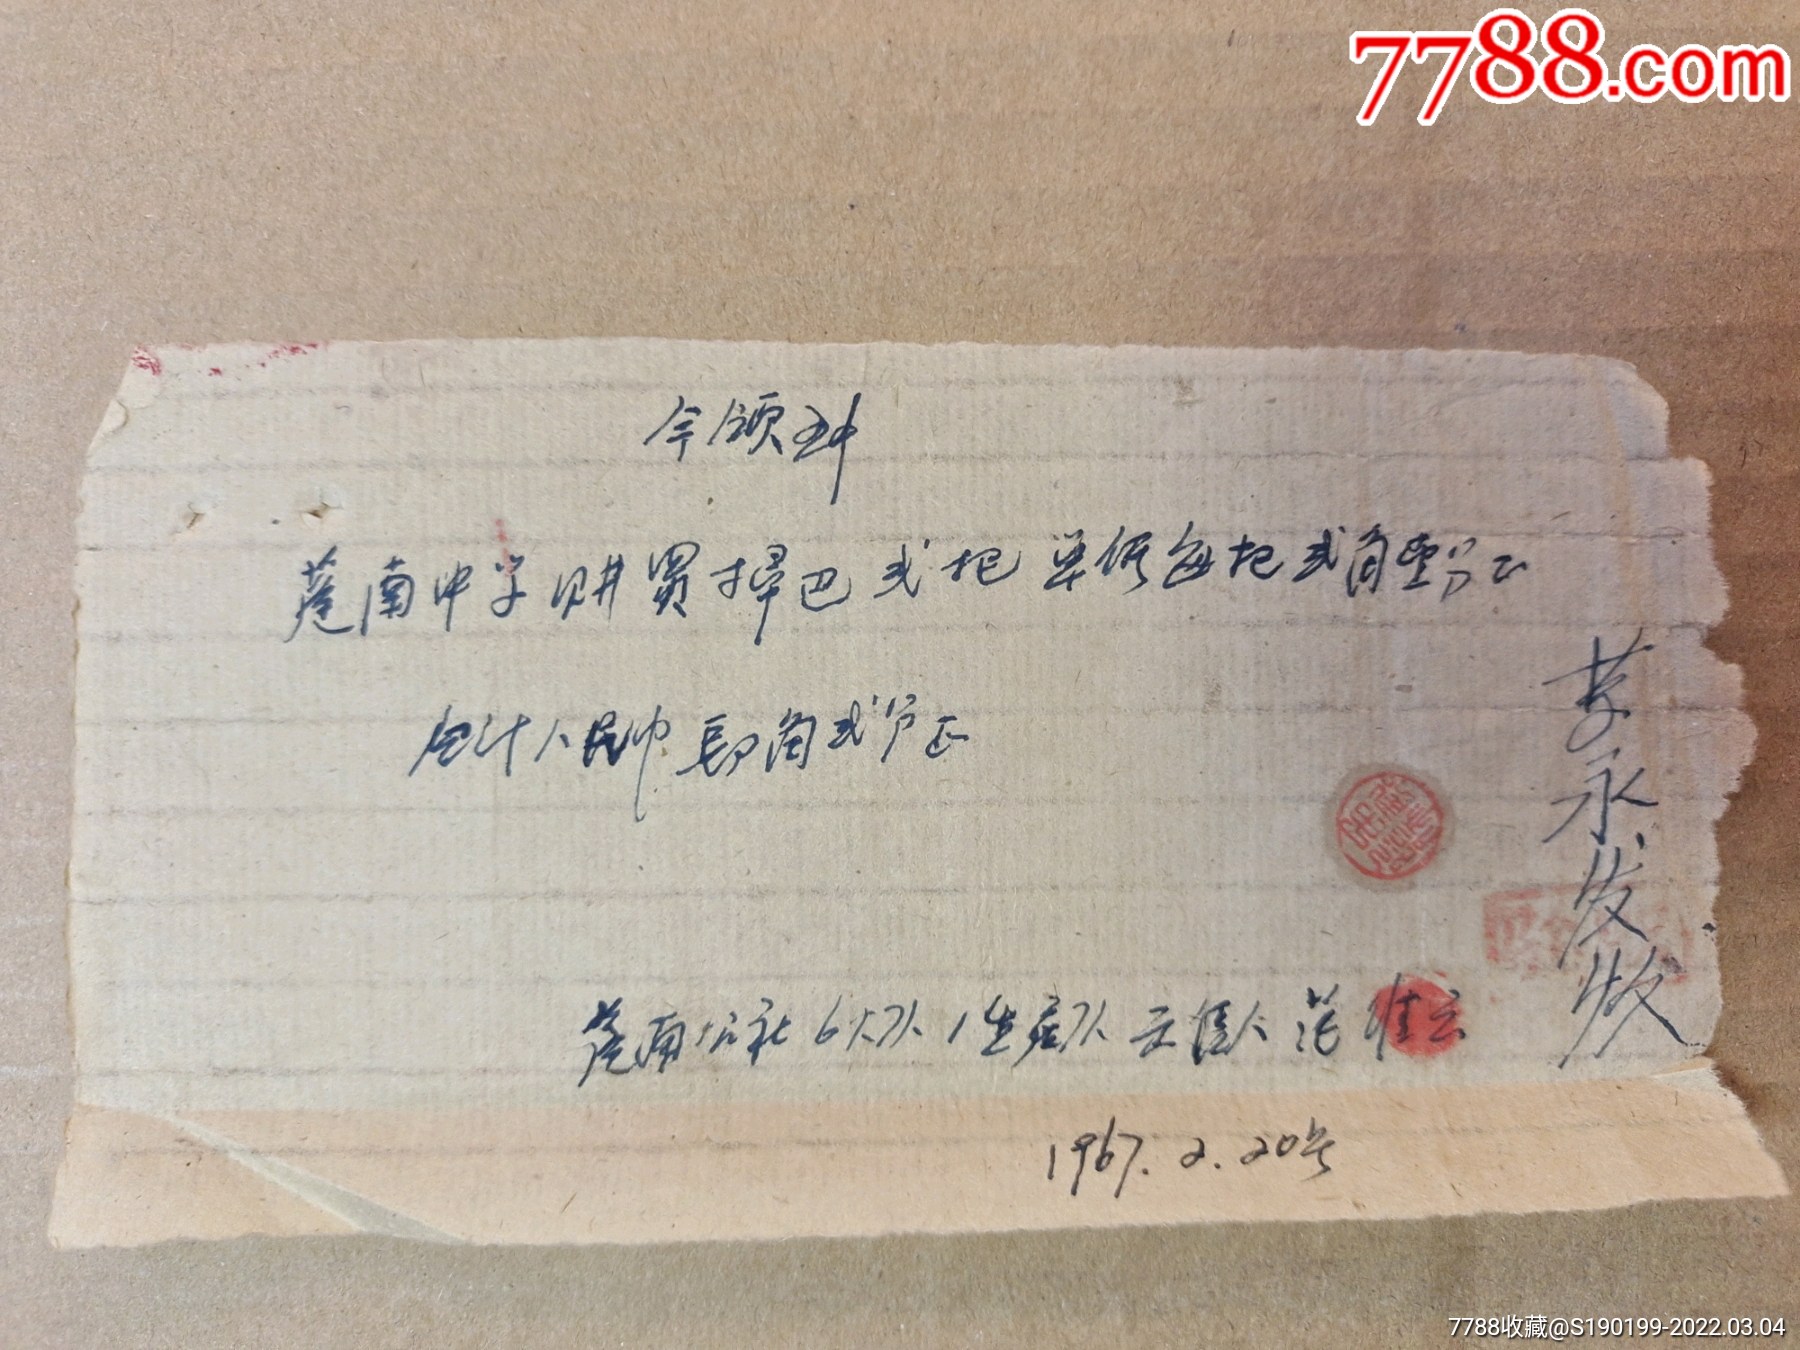 7788.com
今领到
蓬南中学购买掃巴弍把单价每把弍角壹分正
合计人民币 肆角弍分正
李永发收
蓬南公社6大队1生产队 云佳人 范佳云
1967.2.20号
7788收藏@S190199-2022.03.04